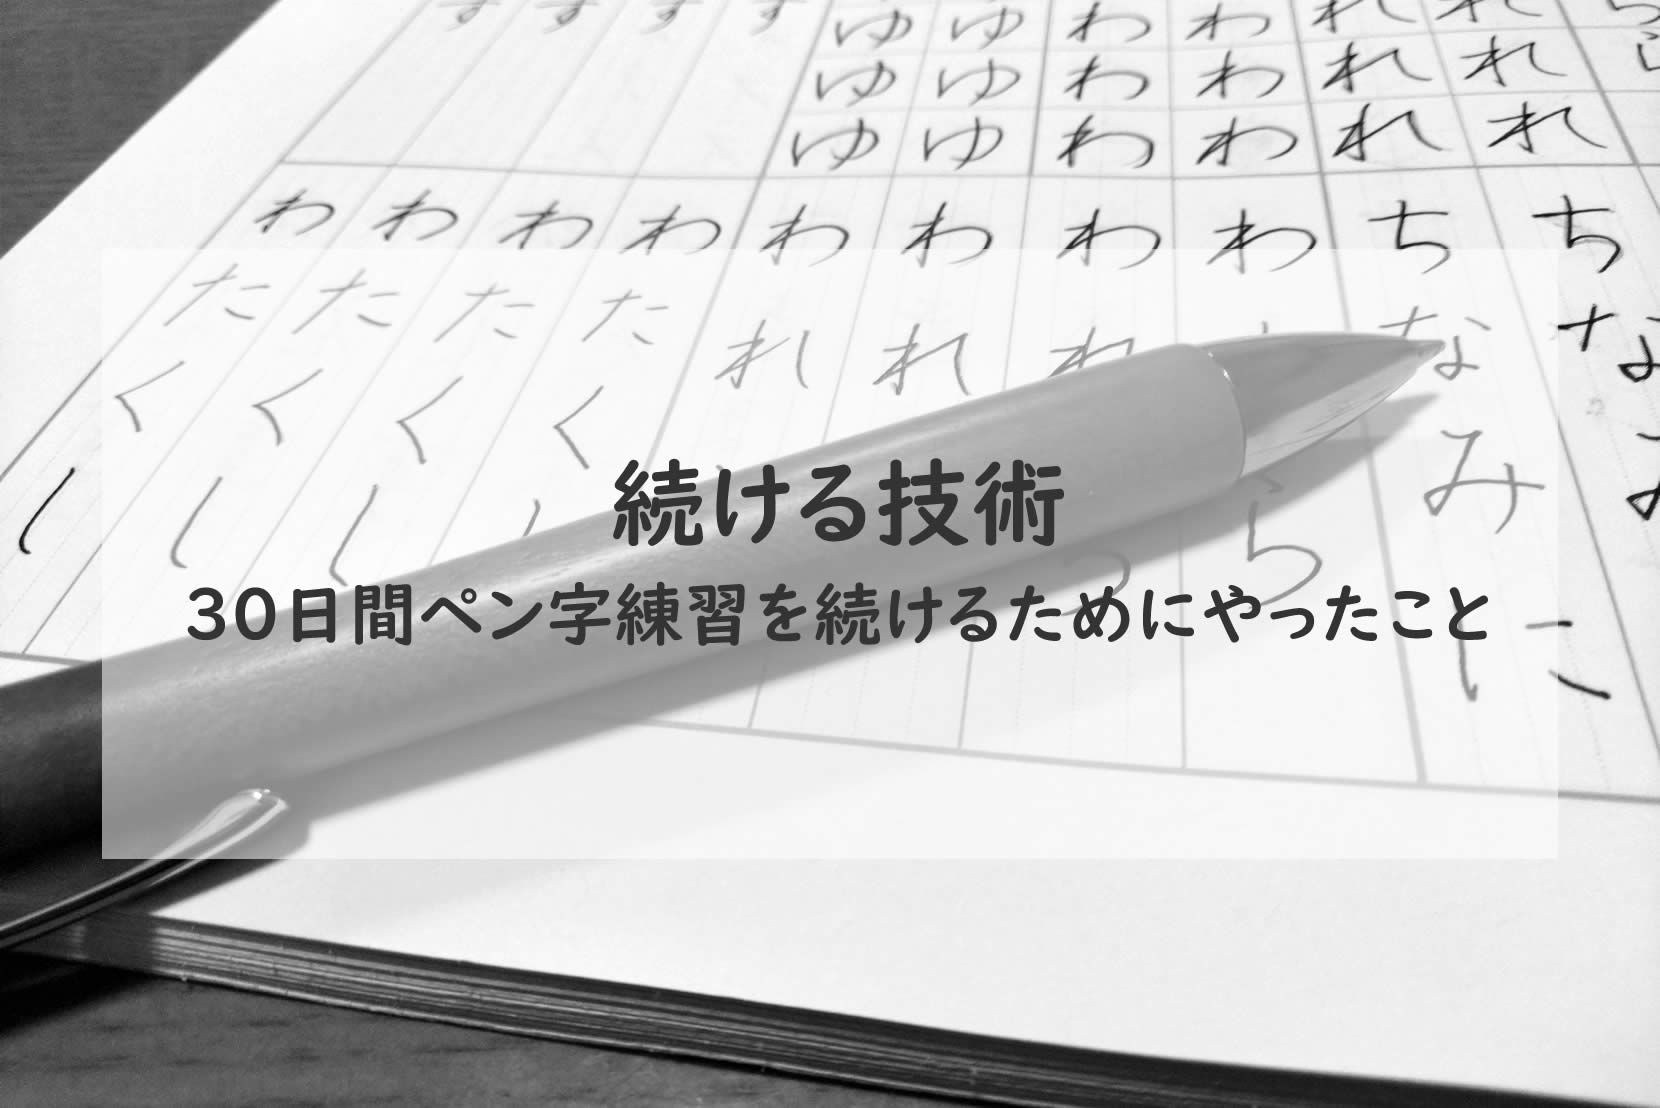 す す す す ゆ ゆ わ わ れ れ
ゆ ゆ わ わ れ れ
ゆ ゆ わ わ れ れ
わ わ わ わ わ わ わ わ ち ち
た た た た れ れ れ な な
く く く く み
し し し し ら
に
続ける技術
30日間ペン字練習を続けるためにやったこと